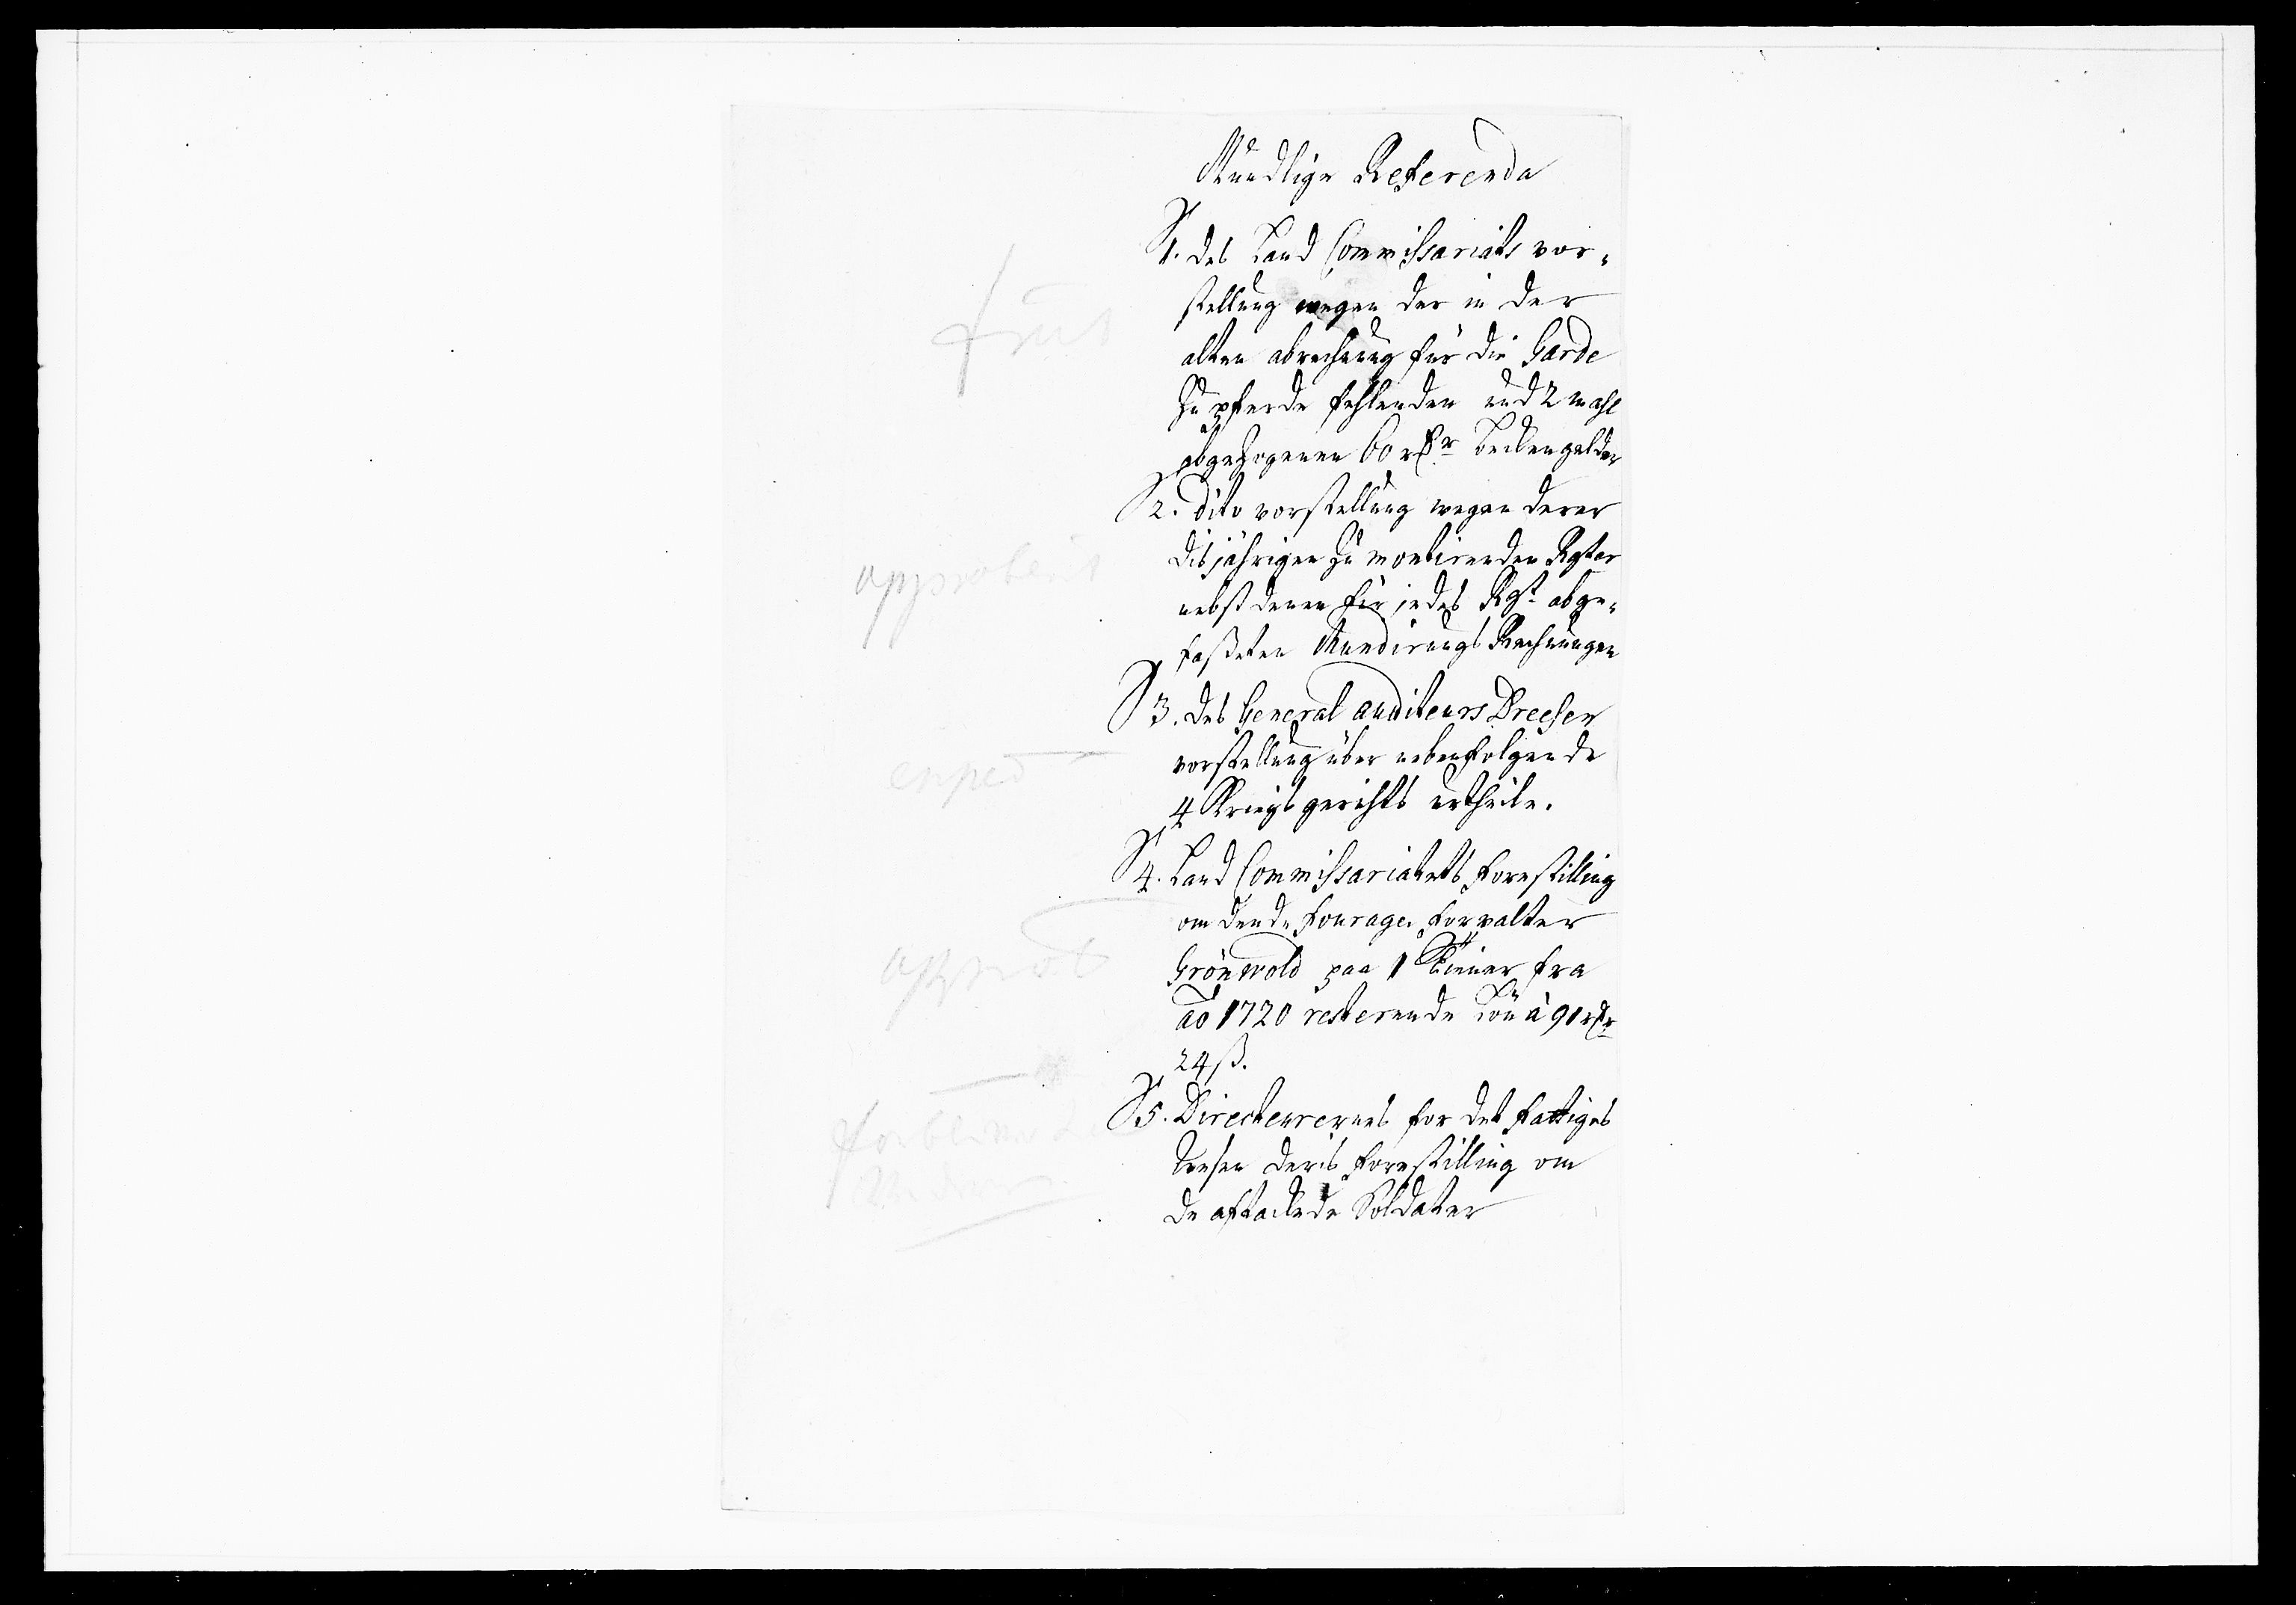 Mundlige Referenda
1. des Land Commissariats vor-
stellung wegen der in der
alten abrechnung für die Garde
zu pferde fehlenden und 2 mahl
abgezogenen 60 rdr
2. dito vorstellung wegen derer
disjährigen zu montirenden Rgter
nebst denen für jedes Rgt abge-
faßeten Mundirungs Rechnungen
3. des General auditeurs Dreesen
vorstellung über nebenfolgende
4 Kriegs gerichts urtheile.
4. Land Commissariatets forestilling
om dend. Fourage forvalter
Grönwold paa 1 fra
ao 1720 resterende Lön à 91 rdr
24 ß.
5. Directeurernes for det fattiges
Wesen deris forestilling om
de aftackede Soldater
approbeit
exped
approb